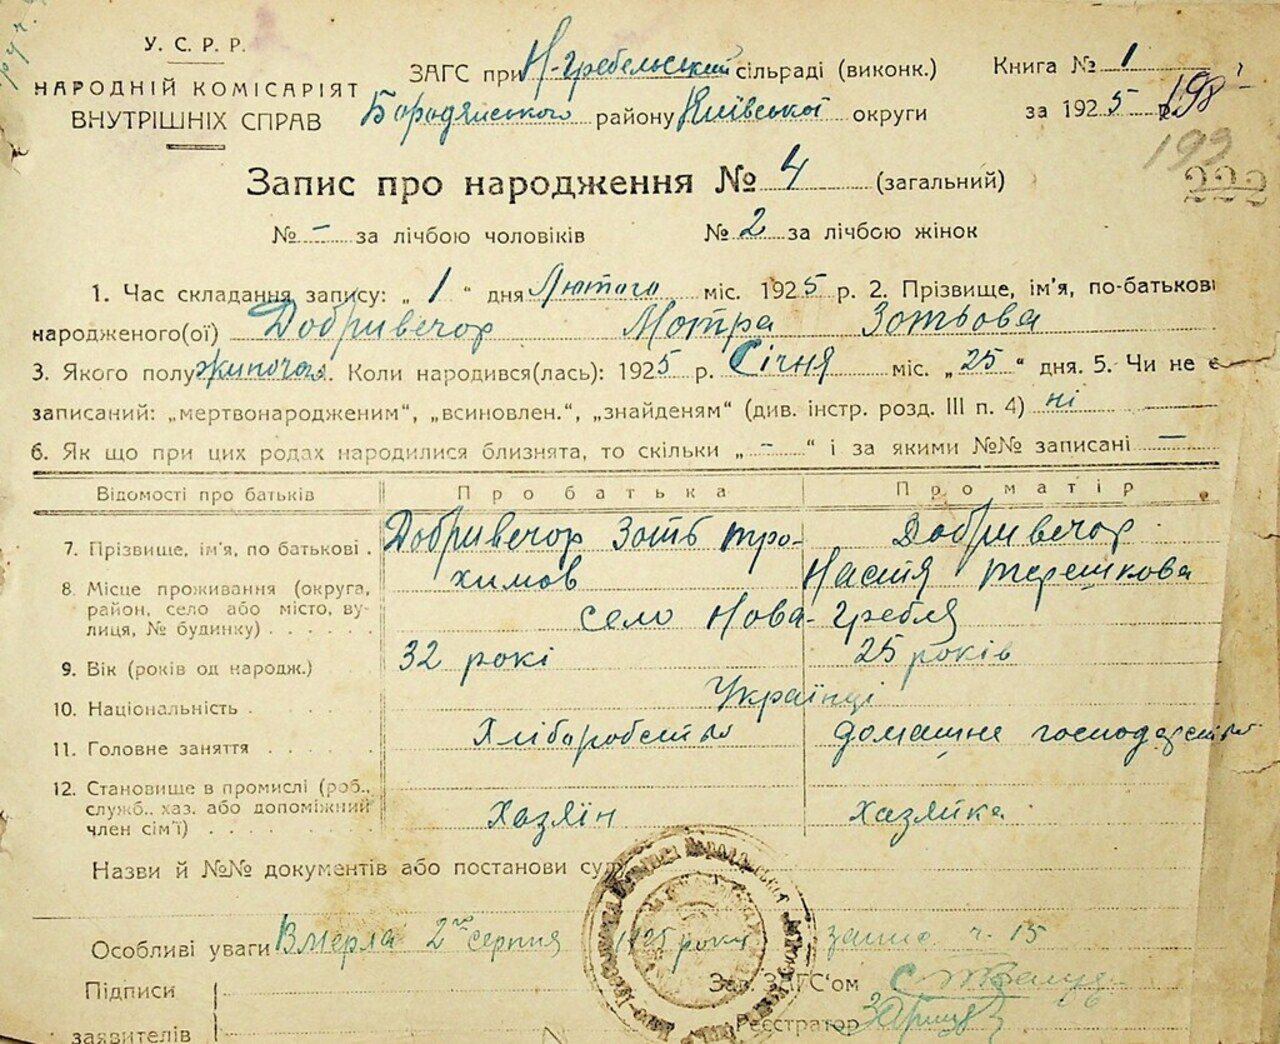 У. С. Р. Р.
НАРОДНІЙ КОМІСАРІЯТ
ВНУТРІШНІХ СПРАВ
ЗАГС при Н-гребельський сільраді (виконк.)
Бородянського району Київської округи
Книга № 1
за 1925 р. 198
199
222
Запис про народження № 4 (загальний)
№ – за лічбою чоловіків № 2 за лічбою жінок
1. Час складання запису: „ 1 “ дня Лютого міс. 1925 р. 2. Прізвище, ім'я, по-батькові
народженого(ої) Добривечор Мотра Зотьова
3. Якого полу жиночая. Коли народився(лась): 1925 р. Січня міс. „25“ дня. 5. Чи не є
записаний: „мертвонародженим“, „всиновлен.“, „знайденям“ (див. інстр. розд. III п. 4) ні
6. Як що при цих родах народилися близнята, то скільки „ – “ і за якими №№ записані —
Відомості про батьків Про батька Про матір
7. Прізвище, ім'я, по батькові . Добривечор Зотъ тро- Добривечор
химов Настя терешкова
8. Місце проживання (округа,
район, село або місто, ву-
лиця, № будинку) . . . . . . село Нова-гребля
9. Вік (років од народж.) 32 рокі 25 років
10. Національність . Українці
11. Головне заняття . . . . . Хліборобство домашне господарство
12. Становище в промислі (роб.,
служб., хаз. або допоміжний
член сім'ї) . . . . . . . Хазяїн Хазяйка
Назви й №№ документів або постанови суду
Особливі уваги Вмерла 2го серпня 1925 року запис ч. 15
Підписи
заявителів
Зав. ЗАГС'ом
Реєстратор